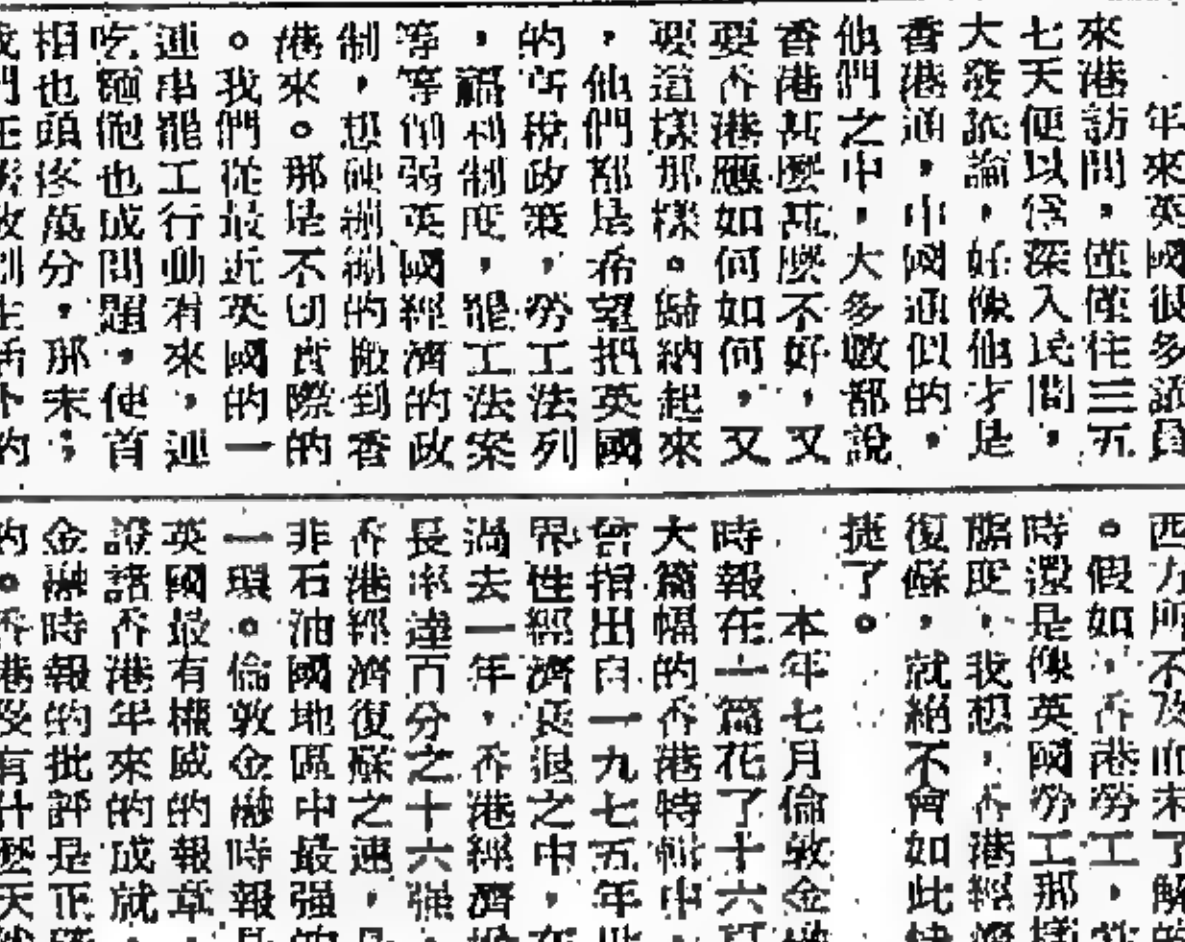 年來英國很多議員
來港訪問,僅僅住三五
七天便以為深入民間,
大發謬論,好像他才是
香港通,中國通似的,
他們之中,大多數都說
香港甚麼甚麼不好,又
要香港應如何如何,又
要這樣那樣。歸納起來
,他們都是希望把英國
的所稅政策,勞工法列
,福利制度,罷工法案
等等削弱英國經濟的政
制,想硬綳綳的搬到香
港來。那是不切實際的
。我們從最近英國的一
連串罷工行動看來,連
吃麵飽也成問題,使首
相也頭疼萬分,那末;
西方所不及而未了解
。假如,香港勞工,
時還是像英國勞工那樣
態度,我想,香港經濟
復蘇,就絕不會如此快
捷了。
本年七月倫敦金融
時報在一篇花了十六頁
大篇幅的香港特輯中,
曾指出自一九七五年
界性經濟衰退之中,在
過去一年,香港經濟
長率達百分之十六强
香港經濟復蘇之速,是
非石油國地區中最强的
一環。倫敦金融時報是
英國最有權威的報章,
說話香港年來的成就,
金融時報的批評是正確
的。香港沒有什麼天然